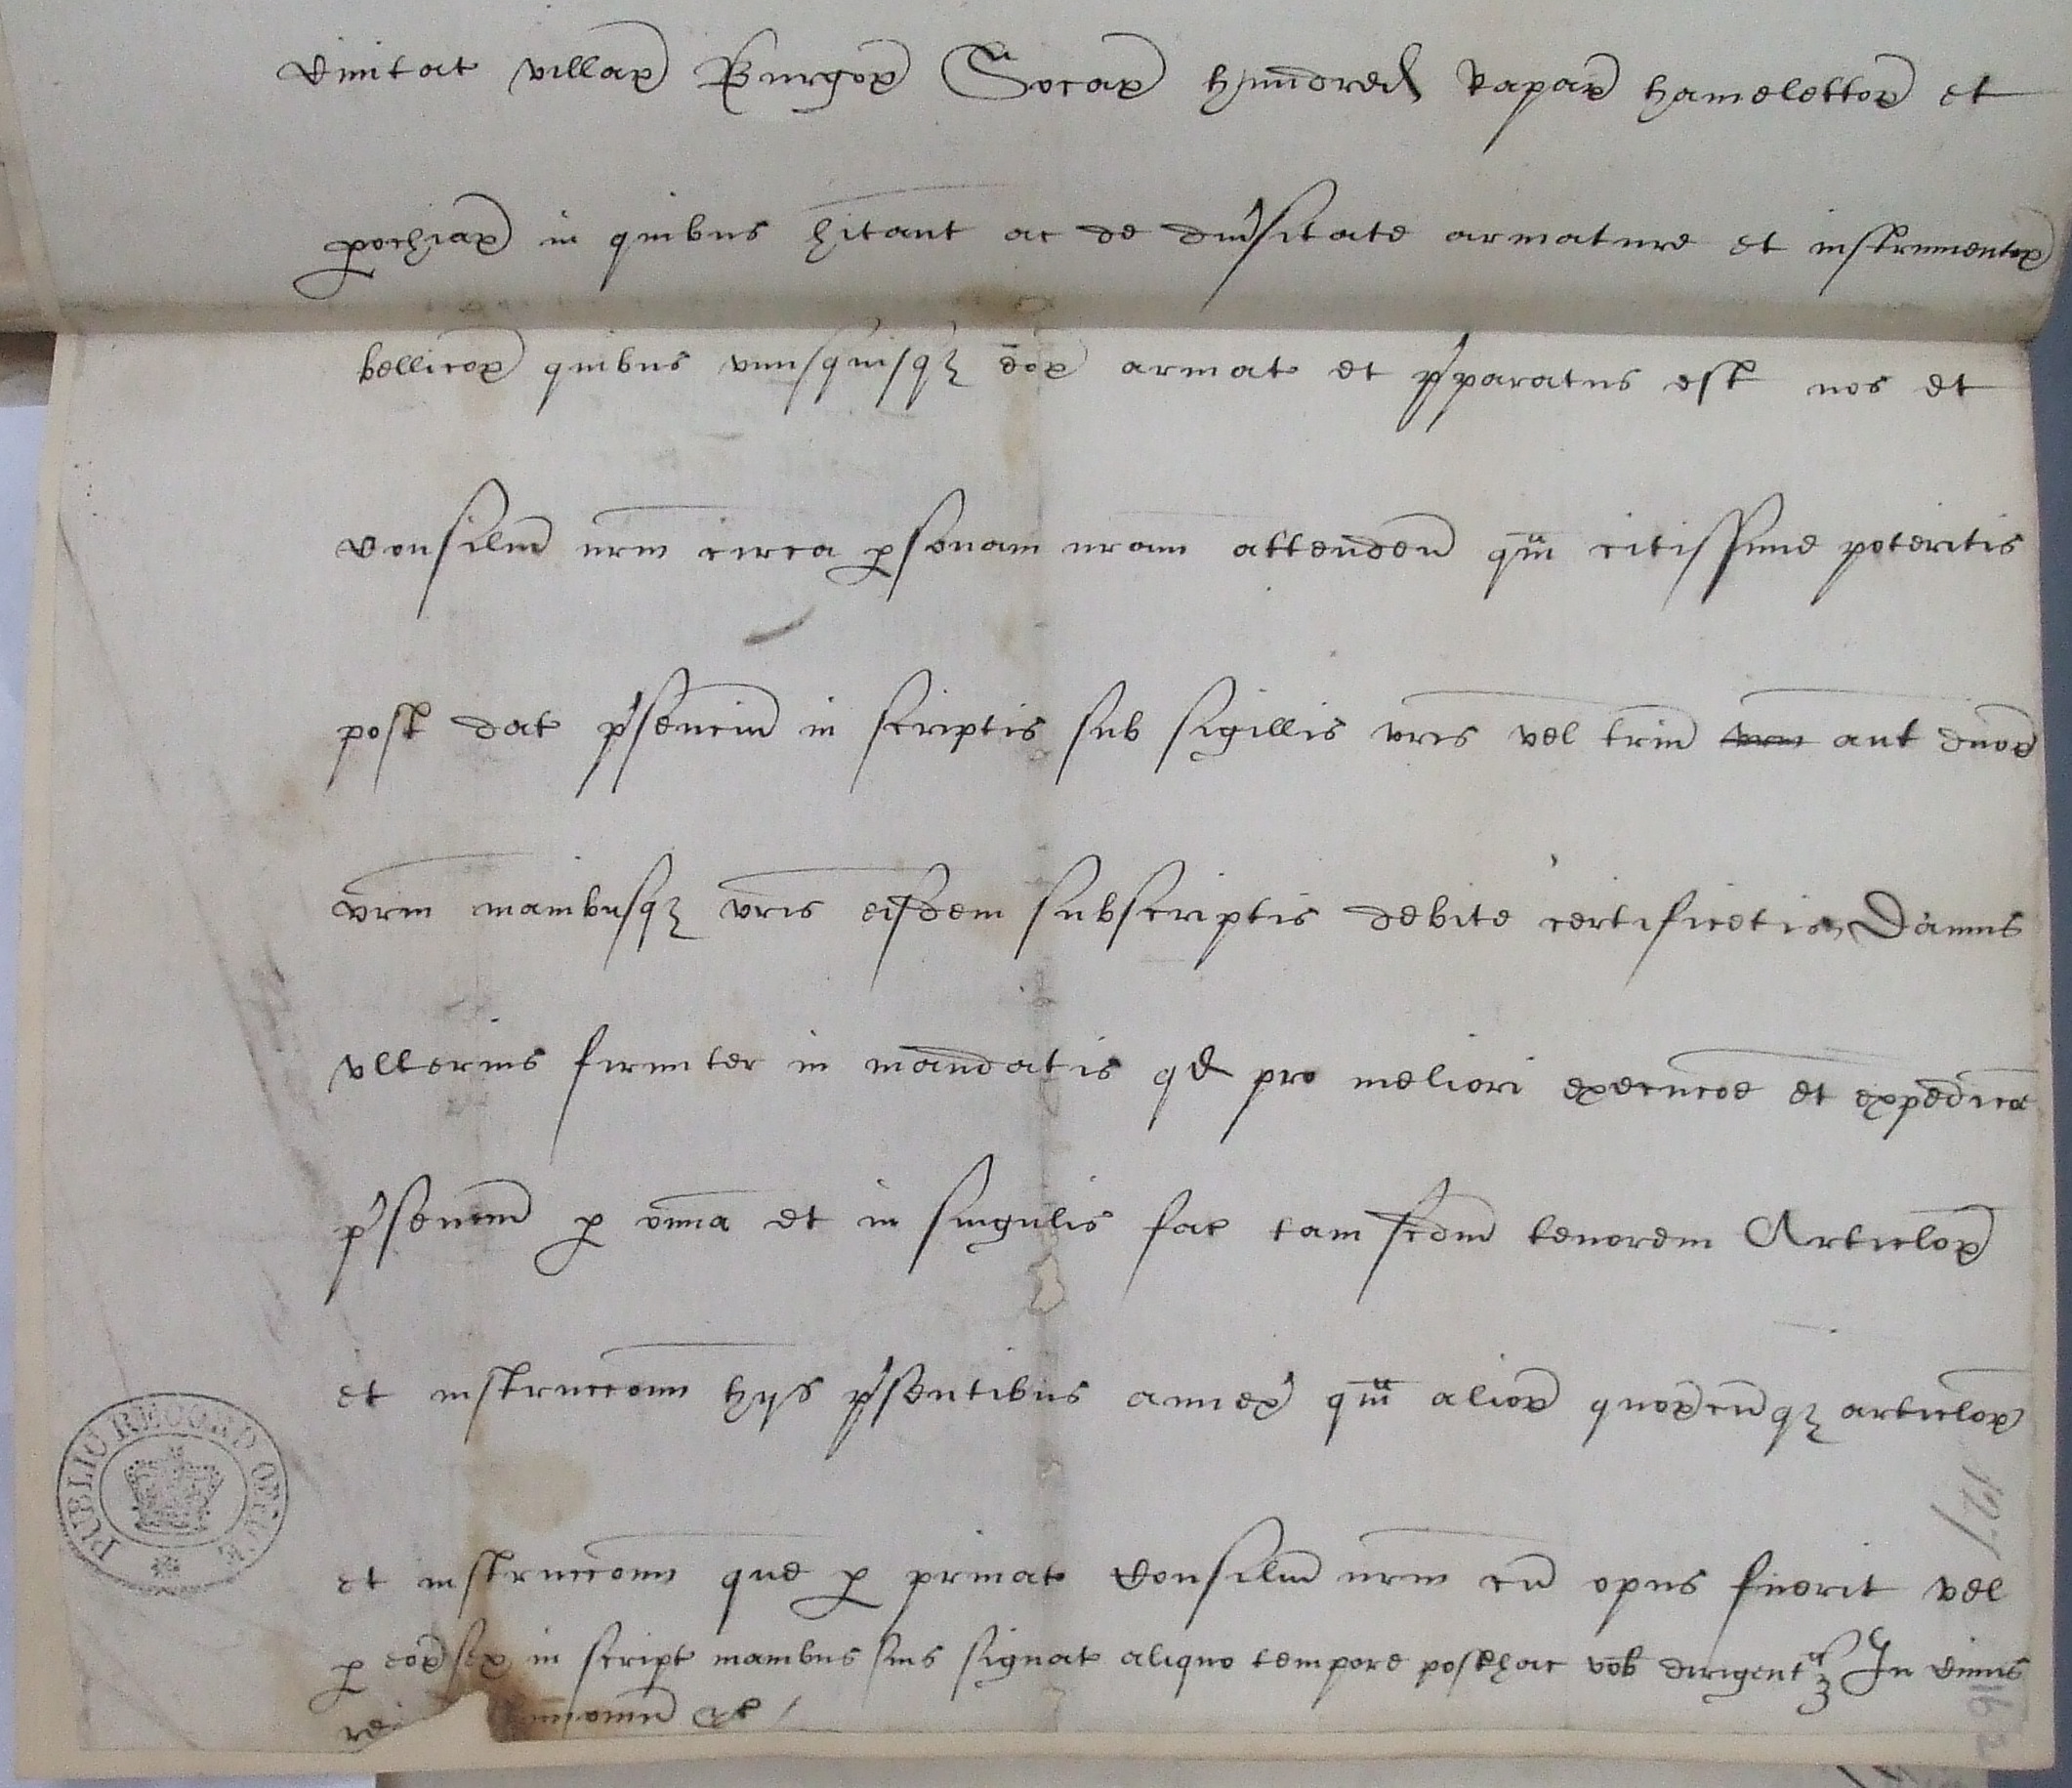 Civitat villaꝝ Burgoꝝ Socaꝝ hundred Rapaꝝ hamelettoꝝ et
ꝑochiaꝝ in quibus hitant ac de divsitate armature et instrumentoꝝ
bellicoꝝ quibus unusquisqꝫ eoꝝ armat et pparatus est nos et
Consiliū nrm circa ꝑsonam nram attendeñ qm citissime poteritis
post dat psenciū in scriptis sub sigillis vris vel triū vrm aut duoꝝ
vrm manibusqꝫ vris eisdem subscriptis debite certificetis Damus
ulterius firmiter in mandatis qd pro meliori execucoe et expedicoe
psenciū ꝑ omia et in singulis fac tam scdm tenorem Articloꝝ
et instrucconu hijs psentibus annex qm alioꝝ quoꝝcūqꝫ articloꝝ
et instrucconu que ꝑ privat Consiliū nrm cū opus fuerit vel
ꝑ eoꝝ sex in script manibus suis signat aliquo tempore posthac vob dirigent In cuius
rei
PUBLIC RECORD OFFICE